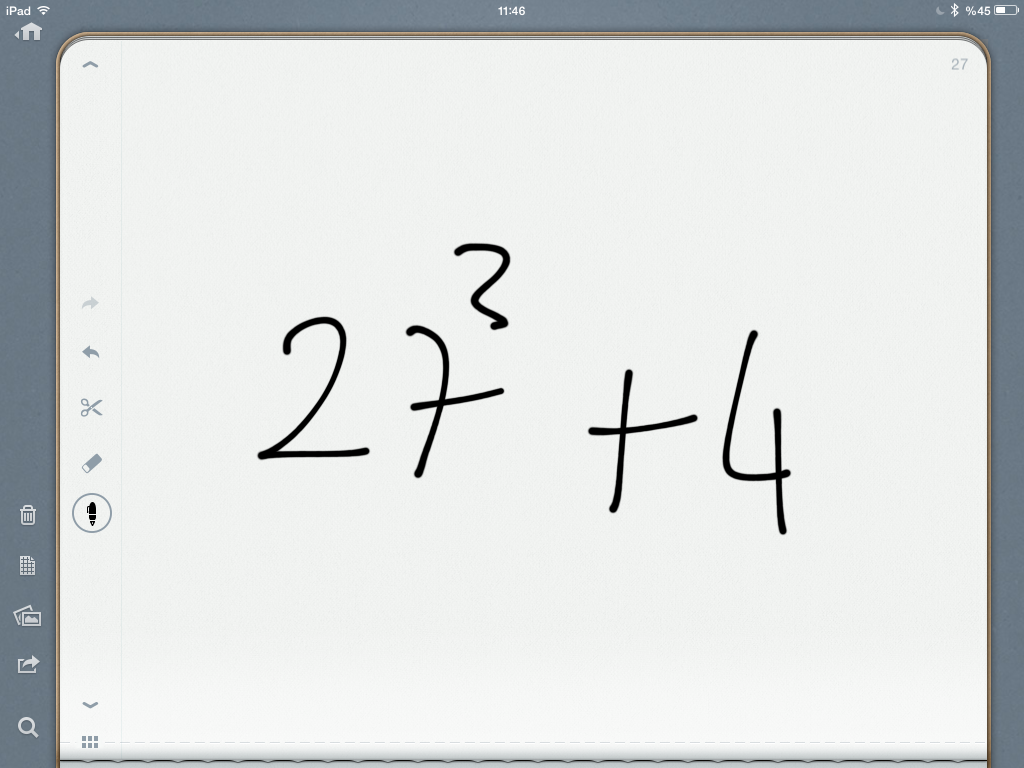 iPad 11:46 %45
27
27³ + 4